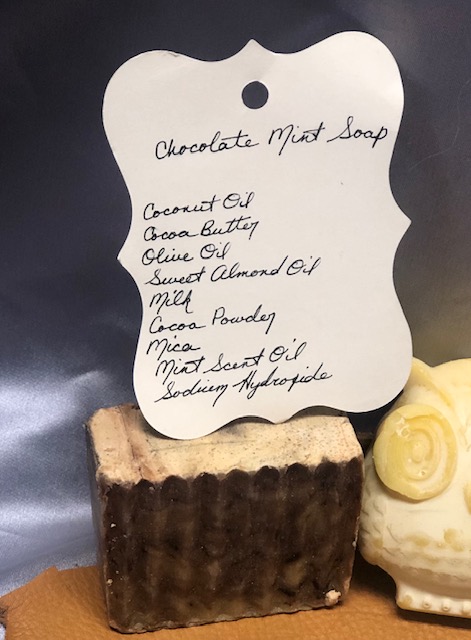 Chocolate Mint Soap
Coconut Oil
Cocoa Butter
Olive Oil
Sweet Almond Oil
Milk
Cocoa Powder
Mica
Mint Scent Oil
Sodium Hydroxide